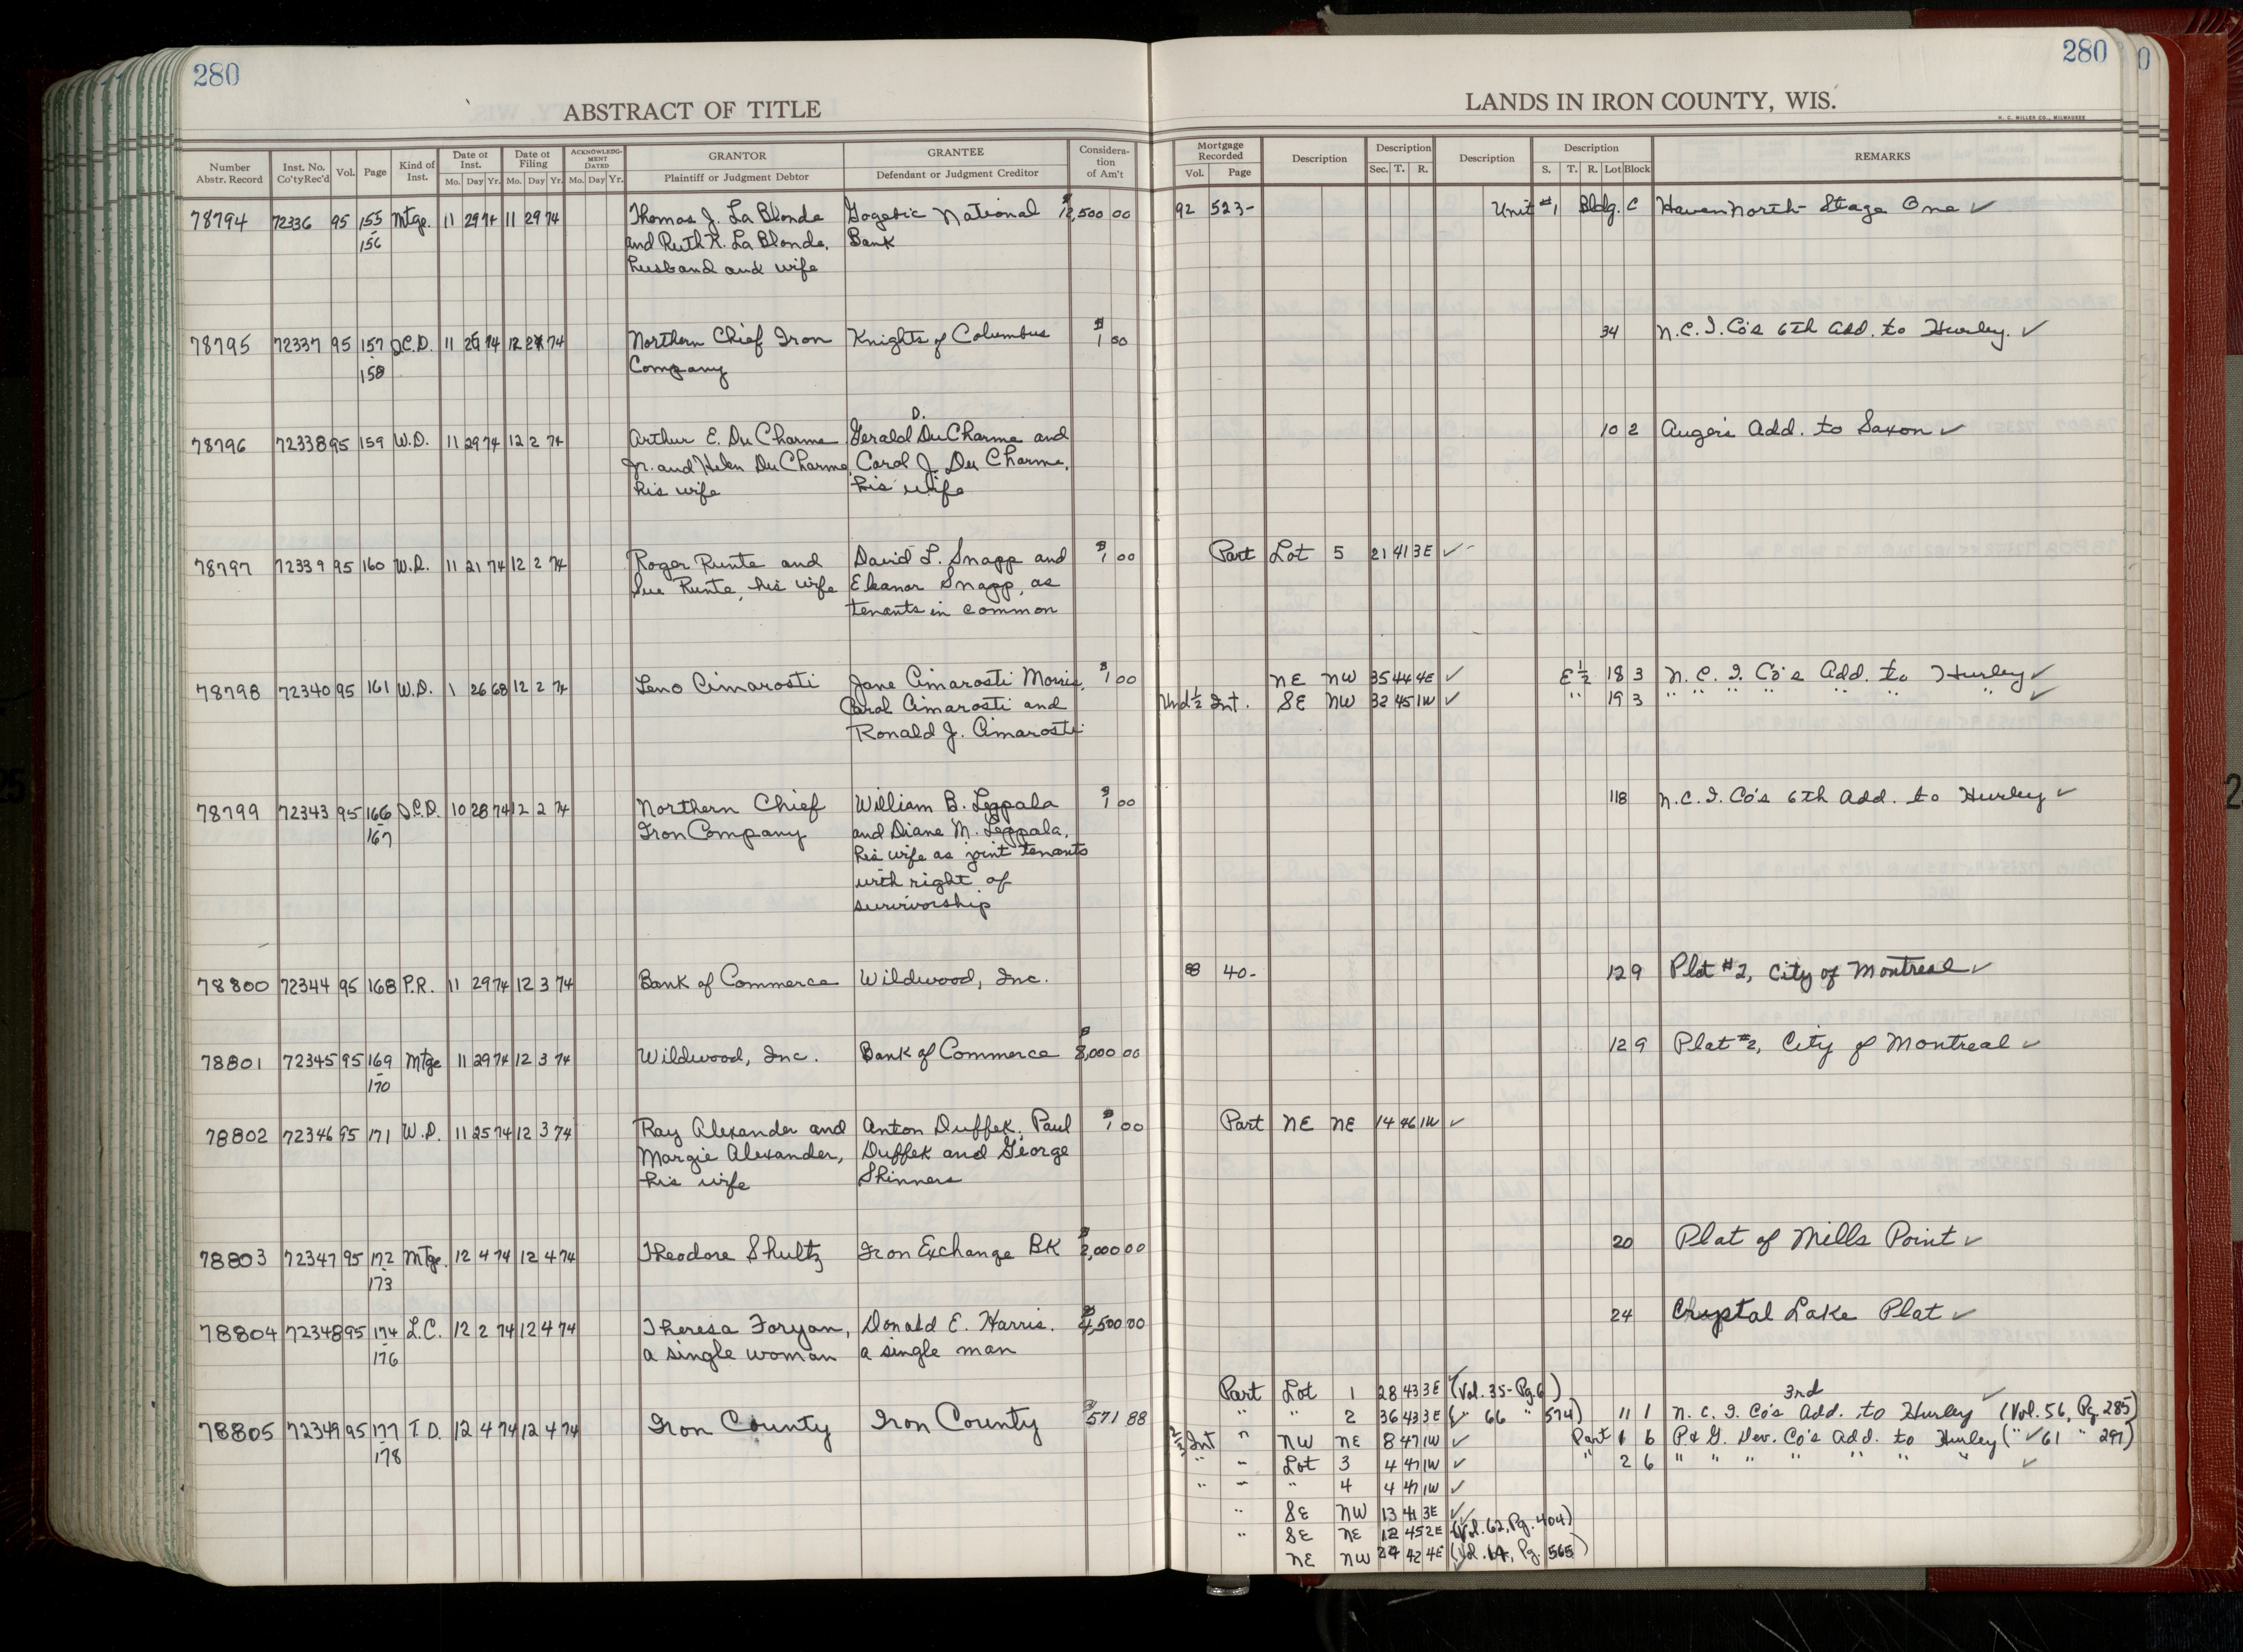 280
ABSTRACT OF TITLE
Number Abstr. Record | Inst. No. Co'tyRec'd | Vol. | Page | Kind of Inst. | Date of Inst. Mo. Day Yr. | Date of Filing Mo. Day Yr. | ACKNOWLEDG-MENT DATED Mo. Day Yr. | GRANTOR Plaintiff or Judgment Debtor | GRANTEE Defendant or Judgment Creditor | Consideration of Am't
78794 72336 95 155 Mtge. 11 29 74 11 29 74 Thomas J. La Blonde Gogebic National $12,500 00
156 and Ruth R. La Blonde, Bank
husband and wife
78795 72337 95 157 Q.C.D. 11 29 74 12 2 74 Northern Chief Iron Knights of Columbus $1 00
158 Company
78796 72338 95 159 W.D. 11 29 74 12 2 74 Arthur E. DuCharme Gerald D. DuCharme and
Jr. and Helen DuCharme, Carol J. DuCharme,
his wife his wife
78797 72339 95 160 W.D. 11 21 74 12 2 74 Roger Runte and David L. Snapp and $1 00
Sue Runte, his wife Eleanor Snapp, as
tenants in common
78798 72340 95 161 W.D. 1 26 68 12 2 74 Leno Cimarosti Jane Cimarosti Morris, $1 00
Carol Cimarosti and
Ronald J. Cimarosti
78799 72343 95 166 Q.C.D. 10 28 74 12 2 74 Northern Chief William B. Leppala $1 00
167 Iron Company and Diane M. Leppala,
his wife as joint tenants
with right of
survivorship
78800 72344 95 168 P.R. 11 29 74 12 3 74 Bank of Commerce Wildwood, Inc.
78801 72345 95 169 Mtge 11 29 74 12 3 74 Wildwood, Inc. Bank of Commerce $8,000 00
170
78802 72346 95 171 W.D. 11 25 74 12 3 74 Ray Alexander and Anton Duffek, Paul $1 00
Margie Alexander, Duffek and George
his wife Skinners
78803 72347 95 172 Mtge. 12 4 74 12 4 74 Theodore Shultz Iron Exchange BK $2,000 00
173
78804 72348 95 174 L.C. 12 2 74 12 4 74 Theresa Foryan, Donald E. Harris. $4,500 00
176 a single woman a single man
78805 72349 95 177 T.D. 12 4 74 12 4 74 Iron County Iron County $571 88
178
280
LANDS IN IRON COUNTY, WIS.
H. C. MILLER CO., MILWAUKEE
Mortgage Recorded Vol. Page | Description | Description Sec. T. R. | Description | Description S. T. R. Lot Block | REMARKS
92 523- Unit #1 Bldg. C Haven North - Stage One ✓
34 N.C.I. Co's 6th Add. to Hurley. ✓
10 2 Auger's Add. to Saxon ✓
Part Lot 5 21 41 3E ✓
NE NW 35 44 4E ✓ E ½ 18 3 N.C.I. Co's Add. to Hurley ✓
Und ½ Int. SE NW 32 45 1W ✓ " 19 3 " " " " " " " ✓
118 N.C.I. Co's 6th Add. to Hurley ✓
88 40- 12 9 Plat #2, City of Montreal ✓
12 9 Plat #2, City of Montreal ✓
Part NE NE 14 46 1W ✓
20 Plat of Mills Point ✓
24 Crystal Lake Plat ✓
Part Lot 1 28 43 3E (Vol. 35-Pg. 6)
" " 2 36 43 3E (" 66 " 574) 11 1 N.C.I. Co's 3rd Add. to Hurley ✓ (Vol. 56, Pg. 285)
½ Int " NW NE 8 47 1W ✓ Part 1 6 P. & G. Dev. Co's Add. to Hurley (" ✓ 61 " 297)
" " Lot 3 4 47 1W ✓ " 2 6 " " " " " " " ✓
" " " 4 4 47 1W ✓
" SE NW 13 41 3E ✓
" SE NE 12 45 2E (Vol. 62, Pg. 404)
NE NW 24 42 4E (Vol. 64, Pg. 565)